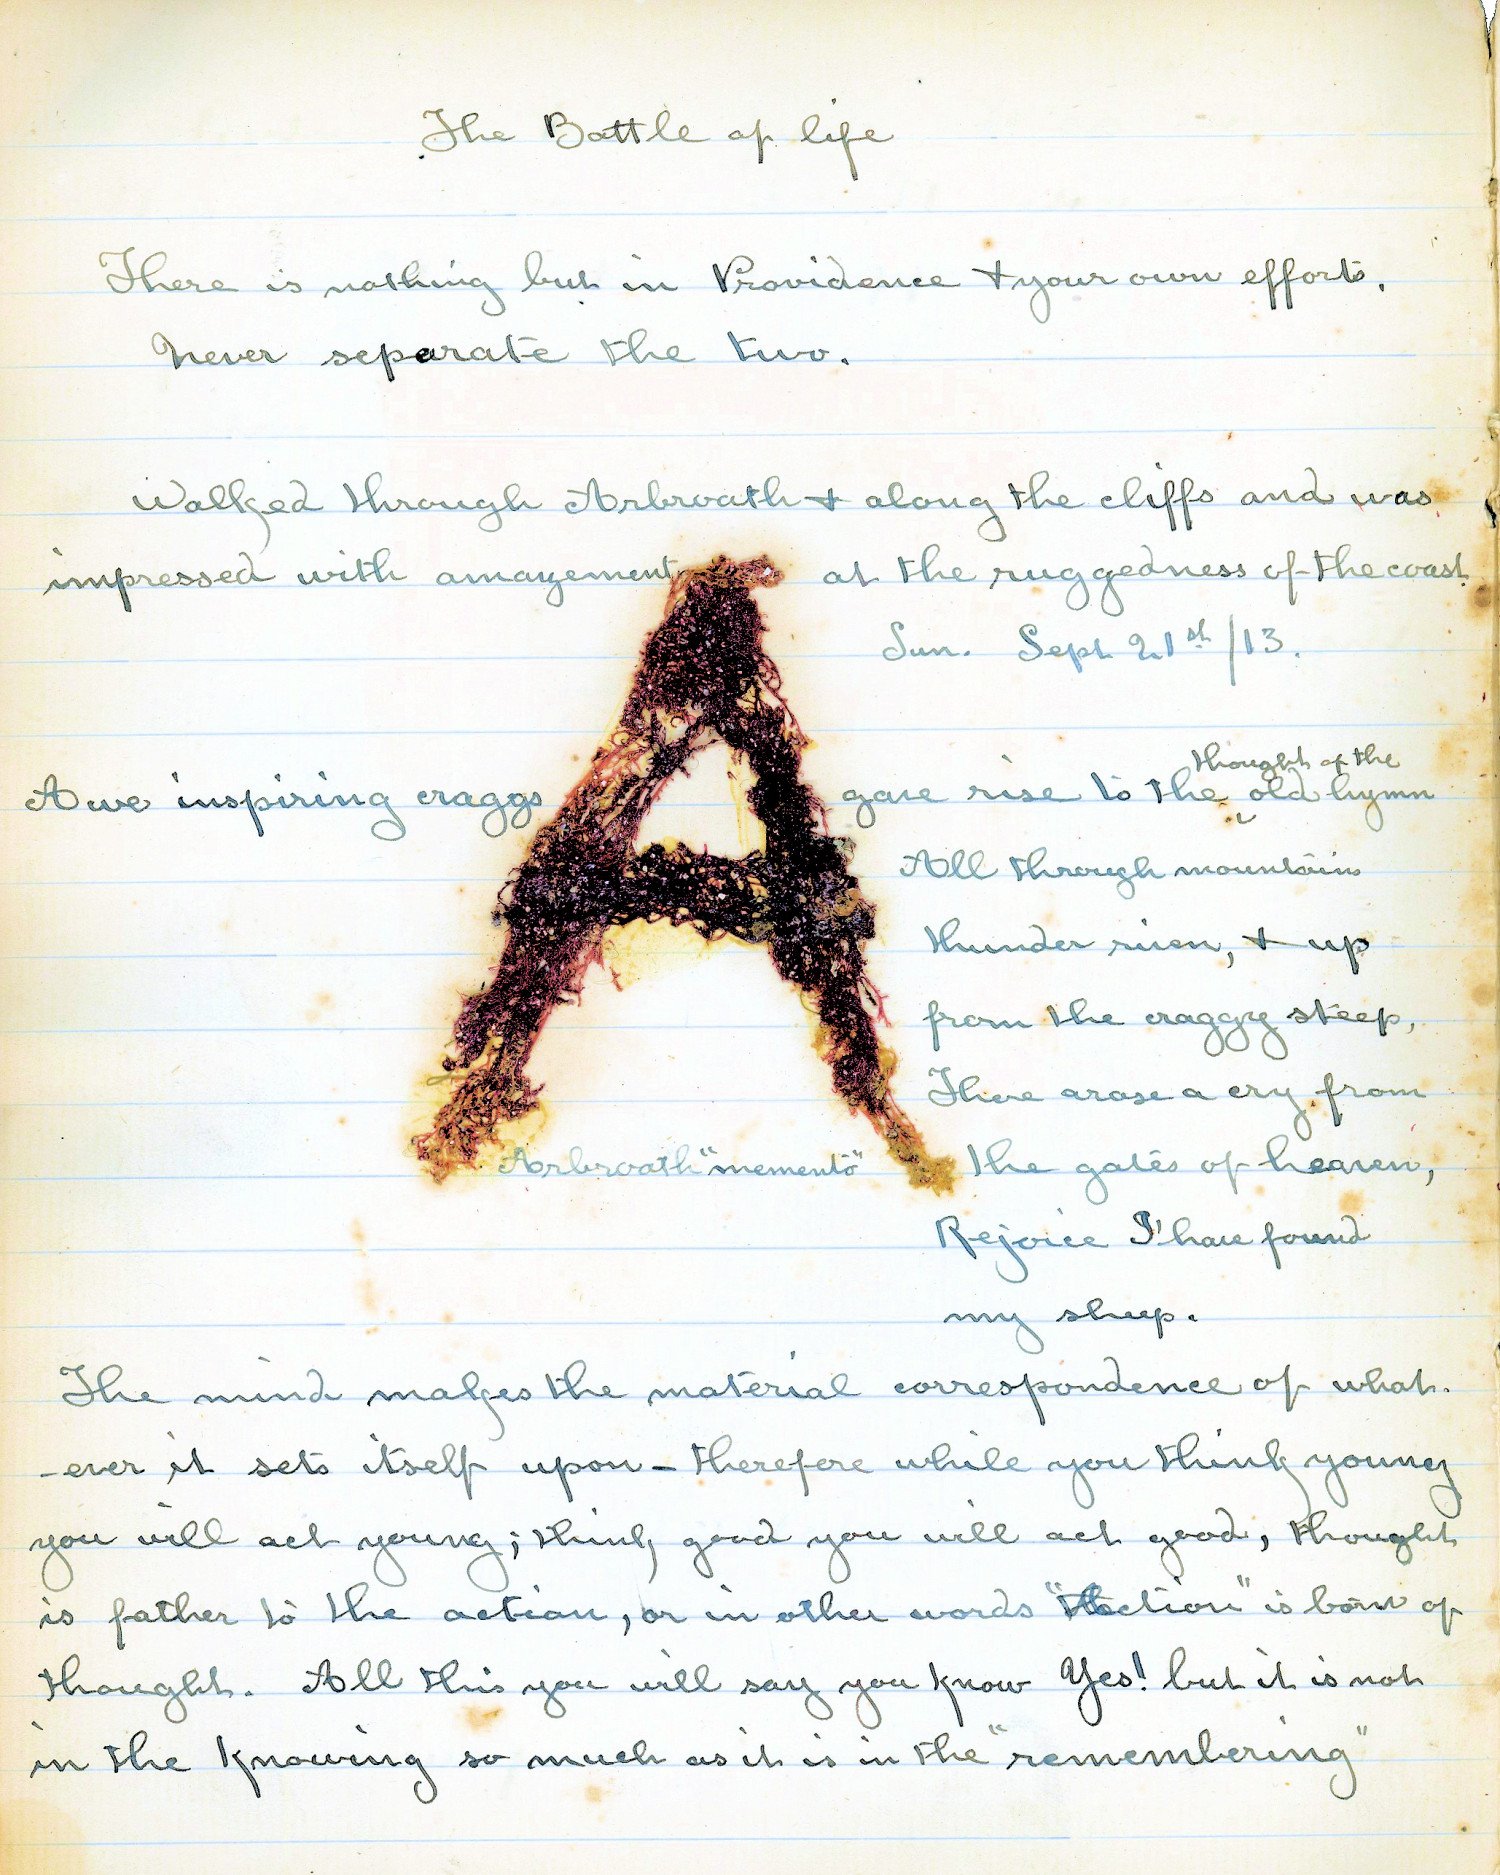 The Battle of life
There is nothing but in Providence + your own efforts.
Never separate the two.
Walked through Arbroath + along the cliffs and was
impressed with amazement at the ruggedness of the coast.
Sun. Sept 21st /13.
thought of the
Awe inspiring craggs gave rise to the old hymn
All through mountains
thunder riven, + up
from the craggy steep,
There arose a cry from
Arbroath "memento" the gates of heaven,
Rejoice I have found
my sheep.
The mind makes the material correspondence of what-
-ever it sets itself upon - therefore while you think young
you will act young; think good you will act good, thought
is father to the action, or in other words "Action" is born of
thought. All this you will say you know Yes! but it is not
in the knowing so much as it is in the "remembering"